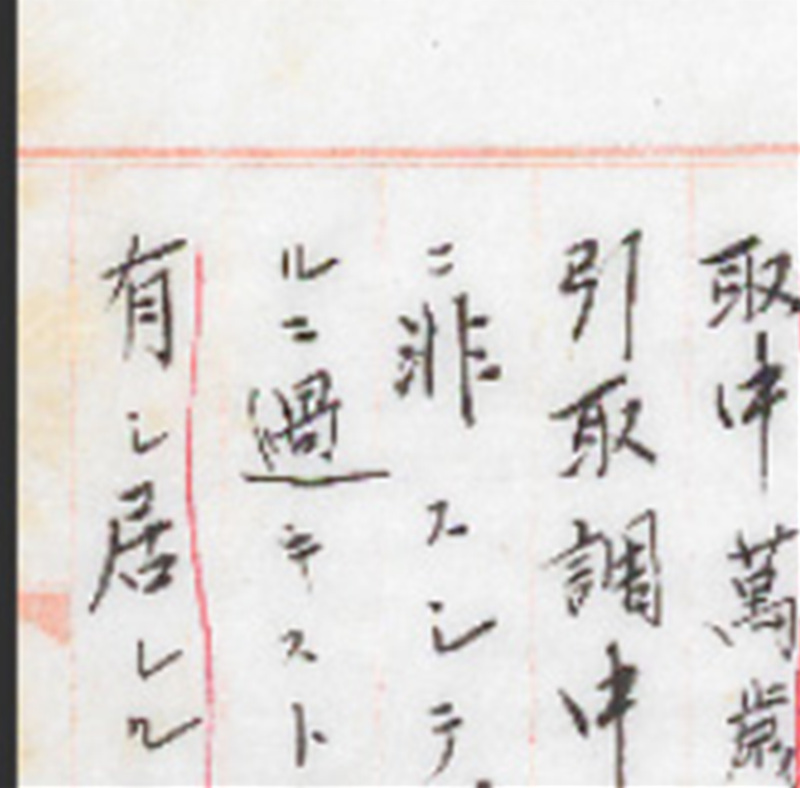 取中萬歳
引取調中
ニ非スシテ
ルニ過キスト
有シ居レル